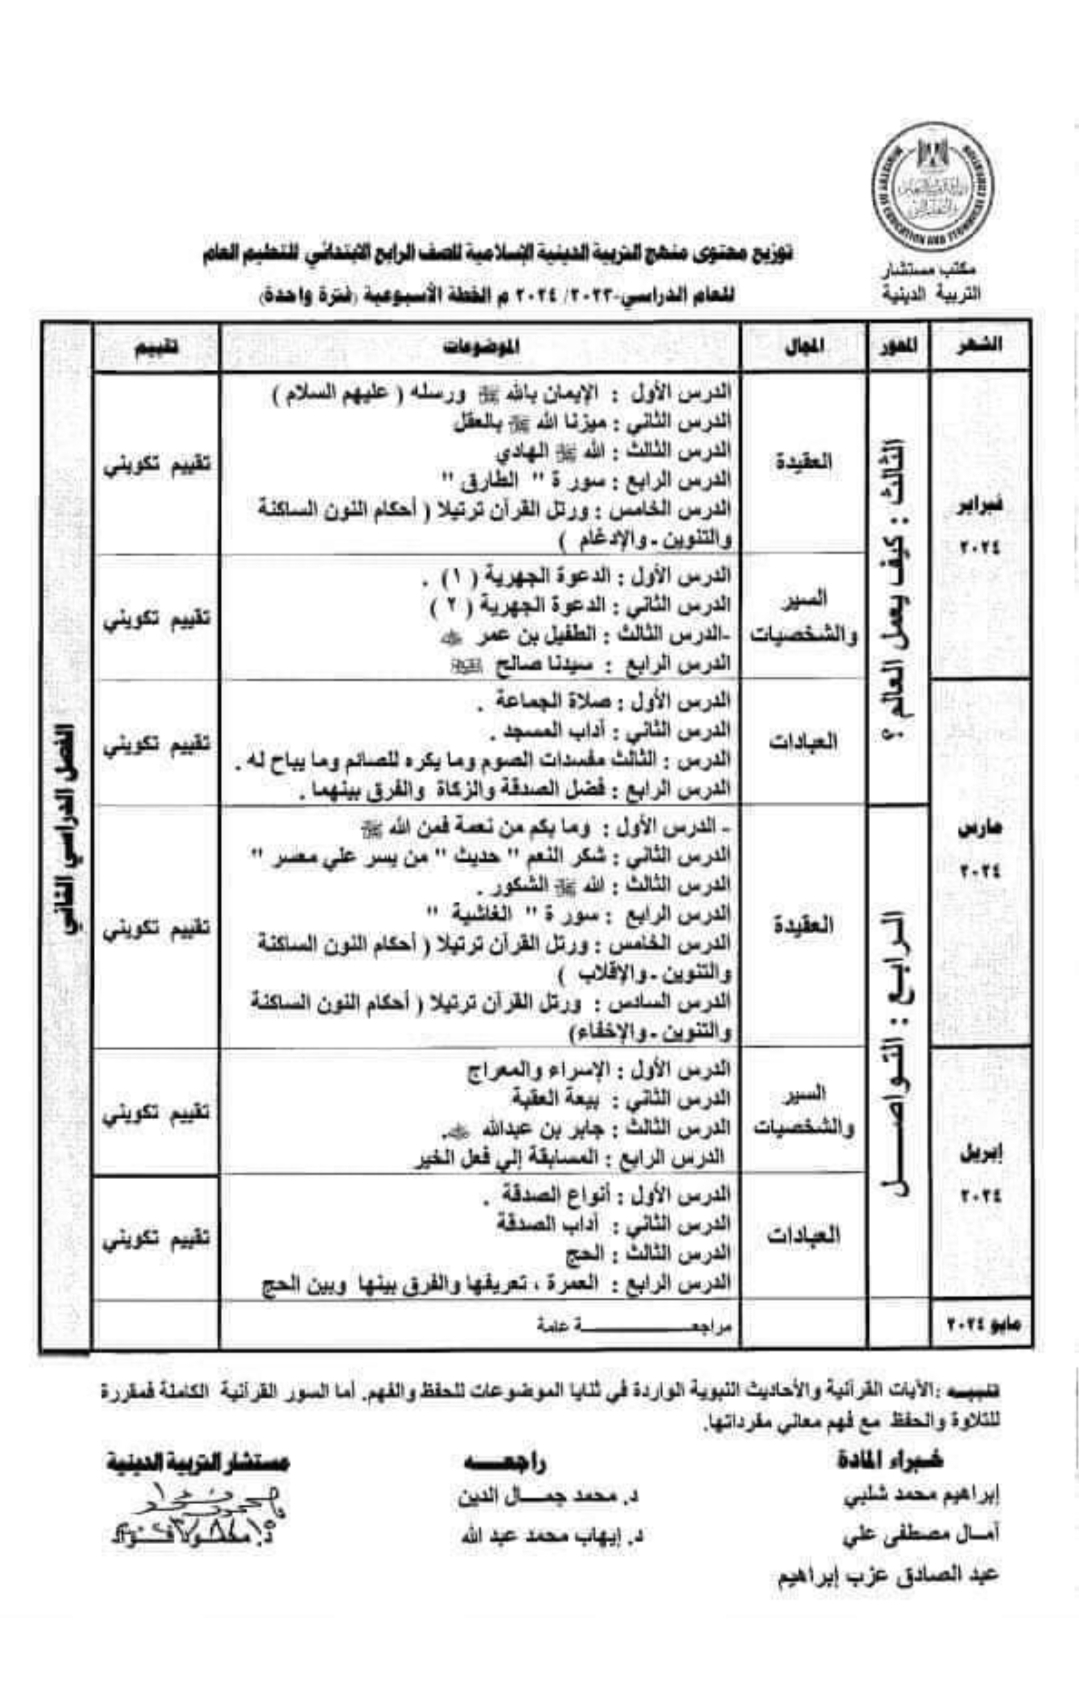 مكتب مستشار
التربية الدينية
توزيع محتوى منهج التربية الدينية الإسلامية للصف الرابع الابتدائي للتعليم العام
للعام الدراسي-٢٠٢٣/ ٢٠٢٤ م الخطة الأسبوعية (فترة واحدة)
الشهر المحور المجال الموضوعات تقييم
فبراير
٢٠٢٤
الثالث : كيف يعمل العالم ؟
العقيدة
الدرس الأول : الإيمان بالله ﷻ ورسله ( عليهم السلام )
الدرس الثاني : ميزنا الله ﷻ بالعقل
الدرس الثالث : الله ﷻ الهادي
الدرس الرابع : سورة " الطارق "
الدرس الخامس : ورتل القرآن ترتيلا ( أحكام النون الساكنة
والتنوين - والإدغام )
تقييم تكويني
السير
والشخصيات
الدرس الأول : الدعوة الجهرية ( ١ ) .
الدرس الثاني : الدعوة الجهرية ( ٢ )
-الدرس الثالث : الطفيل بن عمر
الدرس الرابع : سيدنا صالح
تقييم تكويني
مارس
٢٠٢٤
العبادات
الدرس الأول : صلاة الجماعة .
الدرس الثاني : آداب المسجد .
الدرس : الثالث مفسدات الصوم وما يكره للصائم وما يباح له .
الدرس الرابع : فضل الصدقة والزكاة والفرق بينهما .
تقييم تكويني
الرابع : التواصـــل
العقيدة
- الدرس الأول : وما بكم من نعمة فمن الله ﷻ
الدرس الثاني : شكر النعم " حديث " من يسر علي معسر "
الدرس الثالث : الله ﷻ الشكور .
الدرس الرابع : سورة " الغاشية "
الدرس الخامس : ورتل القرآن ترتيلا ( أحكام النون الساكنة
والتنوين - والإقلاب )
الدرس السادس : ورتل القرآن ترتيلا ( أحكام النون الساكنة
والتنوين - والإخفاء)
تقييم تكويني
إبريل
٢٠٢٤
السير
والشخصيات
الدرس الأول : الإسراء والمعراج
الدرس الثاني : بيعة العقبة
الدرس الثالث : جابر بن عبدالله .
الدرس الرابع : المسابقة إلي فعل الخير
تقييم تكويني
العبادات
الدرس الأول : أنواع الصدقة .
الدرس الثاني : آداب الصدقة
الدرس الثالث : الحج
الدرس الرابع : العمرة ، تعريفها والفرق بينها وبين الحج
تقييم تكويني
مايو ٢٠٢٤
مراجعـــــــــة عامة
الفصل الدراسي الثاني
تنبيـــه :الآيات القرآنية والأحاديث النبوية الواردة في ثنايا الموضوعات للحفظ والفهم. أما السور القرآنية الكاملة فمقررة
للتلاوة والحفظ مع فهم معاني مفرداتها.
خبراء المادة راجعـــه مستشار التربية الدينية
إبراهيم محمد شلبي د. محمد جمـــال الدين
آمـــال مصطفى علي د. إيهاب محمد عبد الله
عبد الصادق عزب إبراهيم